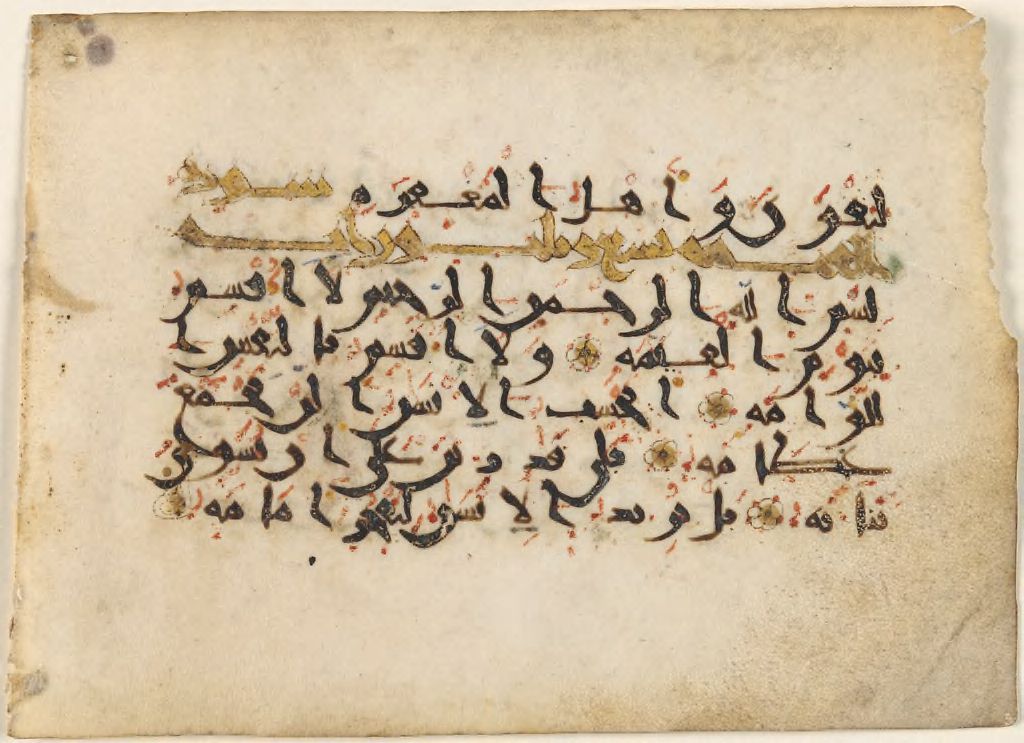 لتقوى و اهل المغفرة سورة
القيمة تسع و ثلثون اية
بسم الله الرحمن الرحيم لا اقسم
بيوم القيمة و لا اقسم بالنفس ا
للوامة ايحسب الانسن الن نجمع
عظامه بلى قدرين على ان نسوى
بنانه بل يريد الانسن ليفجر امامه